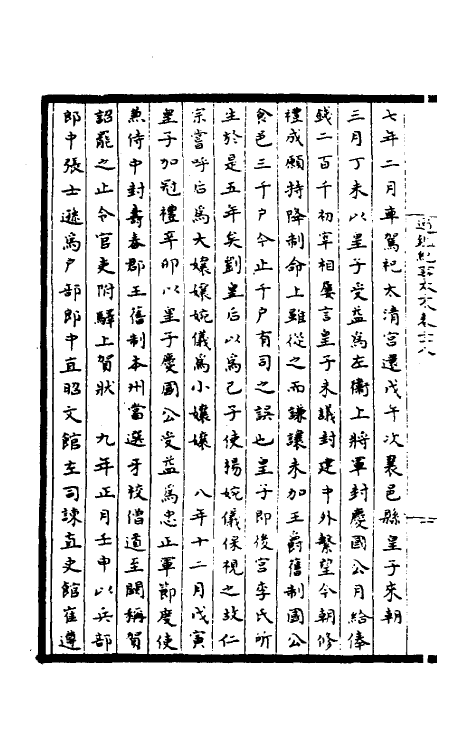 七年二月車駕祀太清宮還戊午次襄邑縣皇子來朝
三月丁未以皇子受益爲左衛上將軍封慶國公月給俸
錢二百千初宰相屢言皇子未議封建中外繫望今朝修
禮成願特降制命上雖從之而謙讓未加王爵舊制國公
食邑三千户今止千户有司之誤也皇子即後宮李氏所
生於是五年矣劉皇后以爲己子使楊婉儀保視之故仁
宗嘗呼后爲大孃孃婉儀爲小孃孃　八年十二月戊寅
皇子加冠禮辛卯以皇子慶國公受益爲忠正軍節度使
兼侍中封壽春郡王舊制本州當選牙校僧道至闕稱賀
詔罷之止令官吏附驛上賀狀　九年正月壬申以兵部
郎中張士遜爲户部郎中直昭文館左司諫直史館崔遵